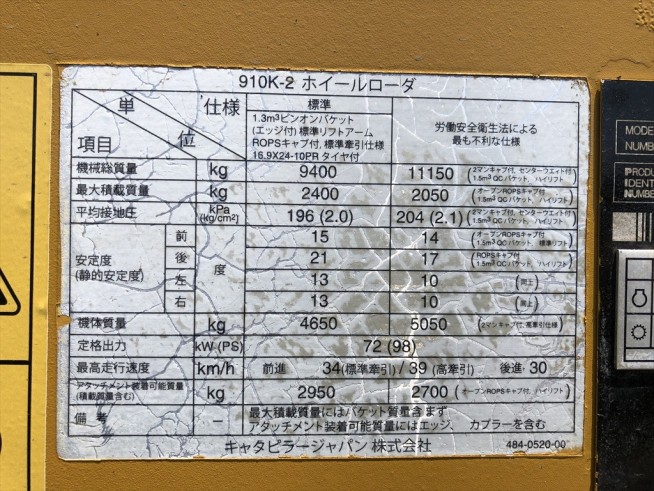 910K-2 ホイールローダ
単位 仕様 標準
1.3m³ピンオンバケット
(エッジ付) 標準リフトアーム
ROPSキャブ付, 標準牽引仕様
16.9X24-10PR タイヤ付
労働安全衛生法による
最も不利な仕様
項目
機械総質量 kg 9400 11150 (2マンキャブ付, センターウエイト付 1.5m³ QCバケット, ハイリフト)
最大積載質量 kg 2400 2050 (オープンROPSキャブ付 1.5m³ QCバケット, ハイリフト)
平均接地圧 kPa (kg/cm²) 196 (2.0) 204 (2.1) (2マンキャブ付, センターウエイト付 1.5m³ QCバケット, ハイリフト)
安定度 (静的安定度) 度
前 15 14 (オープンROPSキャブ付 1.5m³ QCバケット, 標準リフト)
後 21 17 (ROPSキャブ付 1.5m³ QCバケット, ハイリフト)
左 13 10 (同上)
右 13 10 (同上)
機体質量 kg 4650 5050 (2マンキャブ付, 高牽引仕様)
定格出力 kW (PS) 72 (98)
最高走行速度 km/h 前進 34 (標準牽引) / 39 (高牽引) 後進・30
アタッチメント装着可能質量 (積載質量含む) kg 2950 2700 (オープンROPSキャブ付, ハイリフト)
備考 — 最大積載質量にはバケット質量含まず
アタッチメント装着可能質量にはエッジ、カプラーを含む
キャタピラージャパン株式会社 484-0520-00
MODE
NUMB
PRODU
IDENT
NUMBE